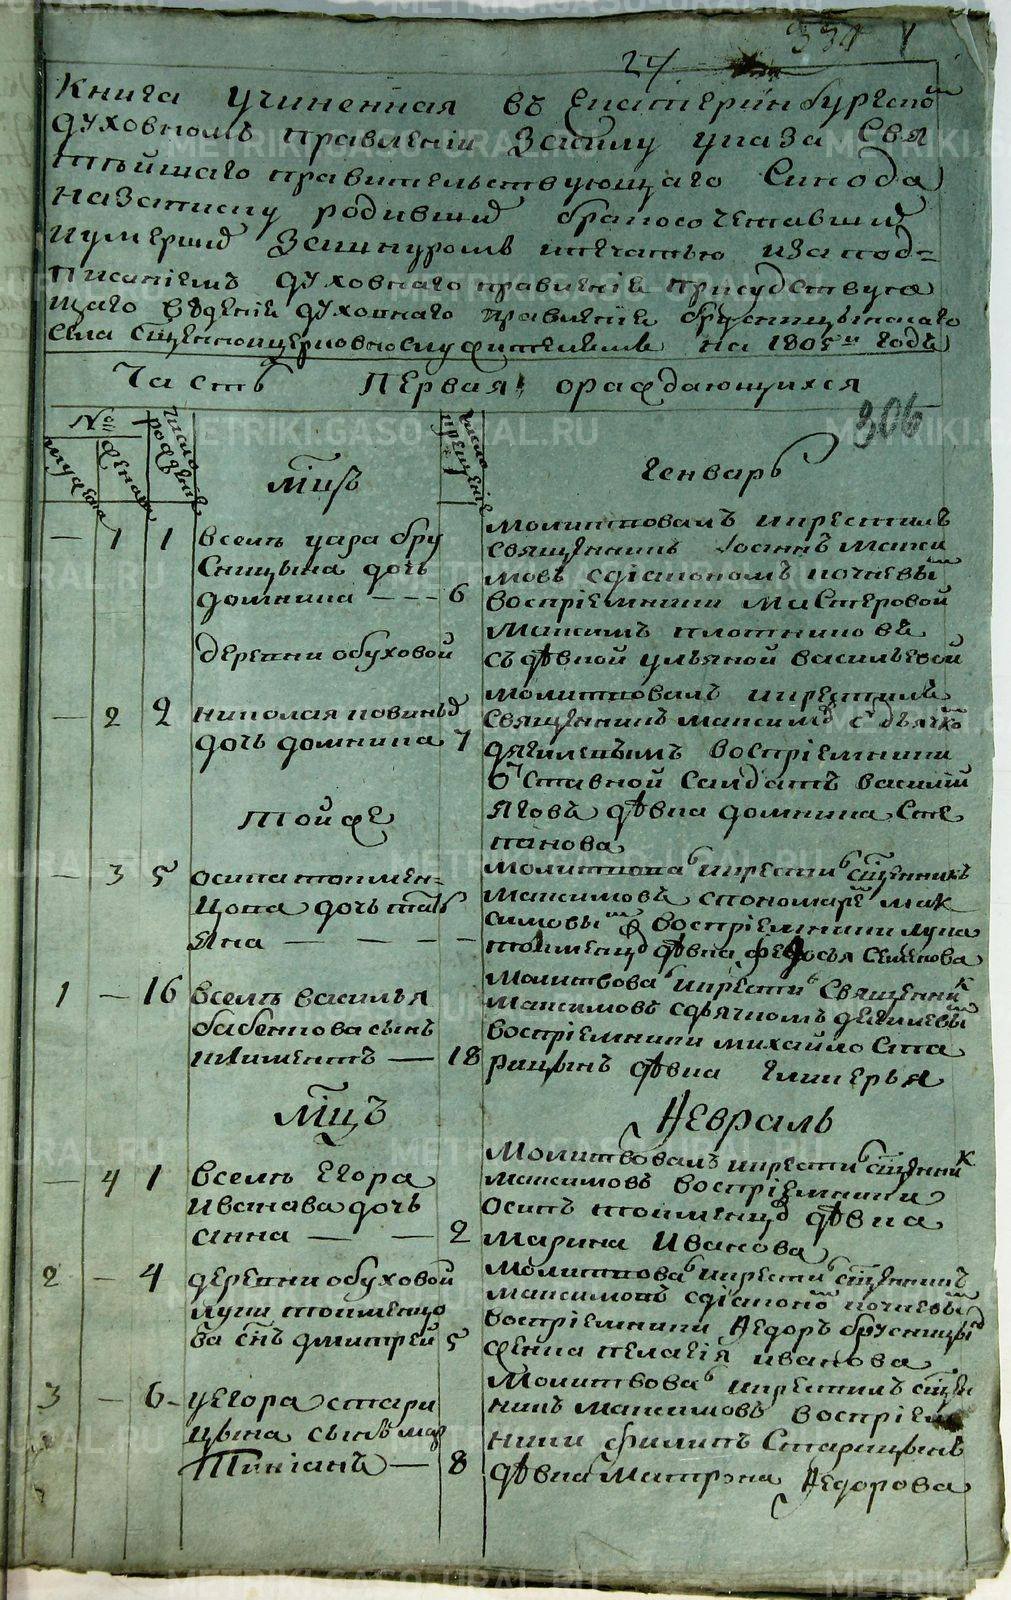 331
24
Книга учиненная въ Екатеринбурском
духовномъ правленіи Засилу указа Свя
тѣйшаго правительствующаго Синода
назаписку родившихъ бракосочетавшихъ
иумершихъ Зашнуромъ ипечатью изапод=
писаніемъ духовнаго правленія присудствую
щаго вѣденіе духовнаго правленіе брусницынскаго
села сщенноицерковнослужителямъ на 1805й годъ
Часть Первая, ораждающихся
306
№
мужеска
женска
число рожденіе
Мцъ
число крещеніе
Генварь
— 1 1
вселѣ уара бру
Сницына дочь
домника --- 6
молитвовалъ икрестилъ
Священникъ Іоаннъ Макси
мовъ сдіакономъ почневым
воспріемники Мастеровой
Максимъ плотниковъ
съ дѣвкой ульяной васильевой
деревни обуховой
— 2 2
николая новиныхъ
дочь домника 7
молитвовалъ икрестилъ
Священникъ Максимовъ съ дьячком
дягилевымъ воспріемники
отставной Салдатъ василій
Яговъ дѣвка домника Сте
панова
Тойже
— 3 5
осипа токмен-
цова дочь тать
яна — — — —
молитвова икрести сщенникъ
Максимовъ спономарем мак
симовым воспріемники лука
токменцов дѣвка федосья Семенова
1 — 16
вселѣ василья
бабенкова сынъ
климентъ — 18
Молитвова икрести Священник
Максимовъ сдьячкомъ дягилевым
воспріемники михайло Ста
рицынъ дѣвка гликерья
Мцъ
Февраль
— 4 1
вселѣ Егора
Иванава дочь
анна — — 2
Молитвовалъ икрести сщенник
максимовъ воспріемники
осипъ токменцов дѣвка
Марина Иванова
2 — 4
деревни обуховой
луки токменцо
ва снъ дмитрей 5
Молитвова икрести сщенникъ
максимовъ сдіаконом почневым
воспріемники Федоръ брусницын
женка пелагія иванова
3 — 6-
уегора стари
цына сынъ мар
Тиніанъ — 8
Молитвова икрестилъ сщен
никъ максимовъ воспріем
ники филипъ Старицынъ
дѣвка Матрона Федорова